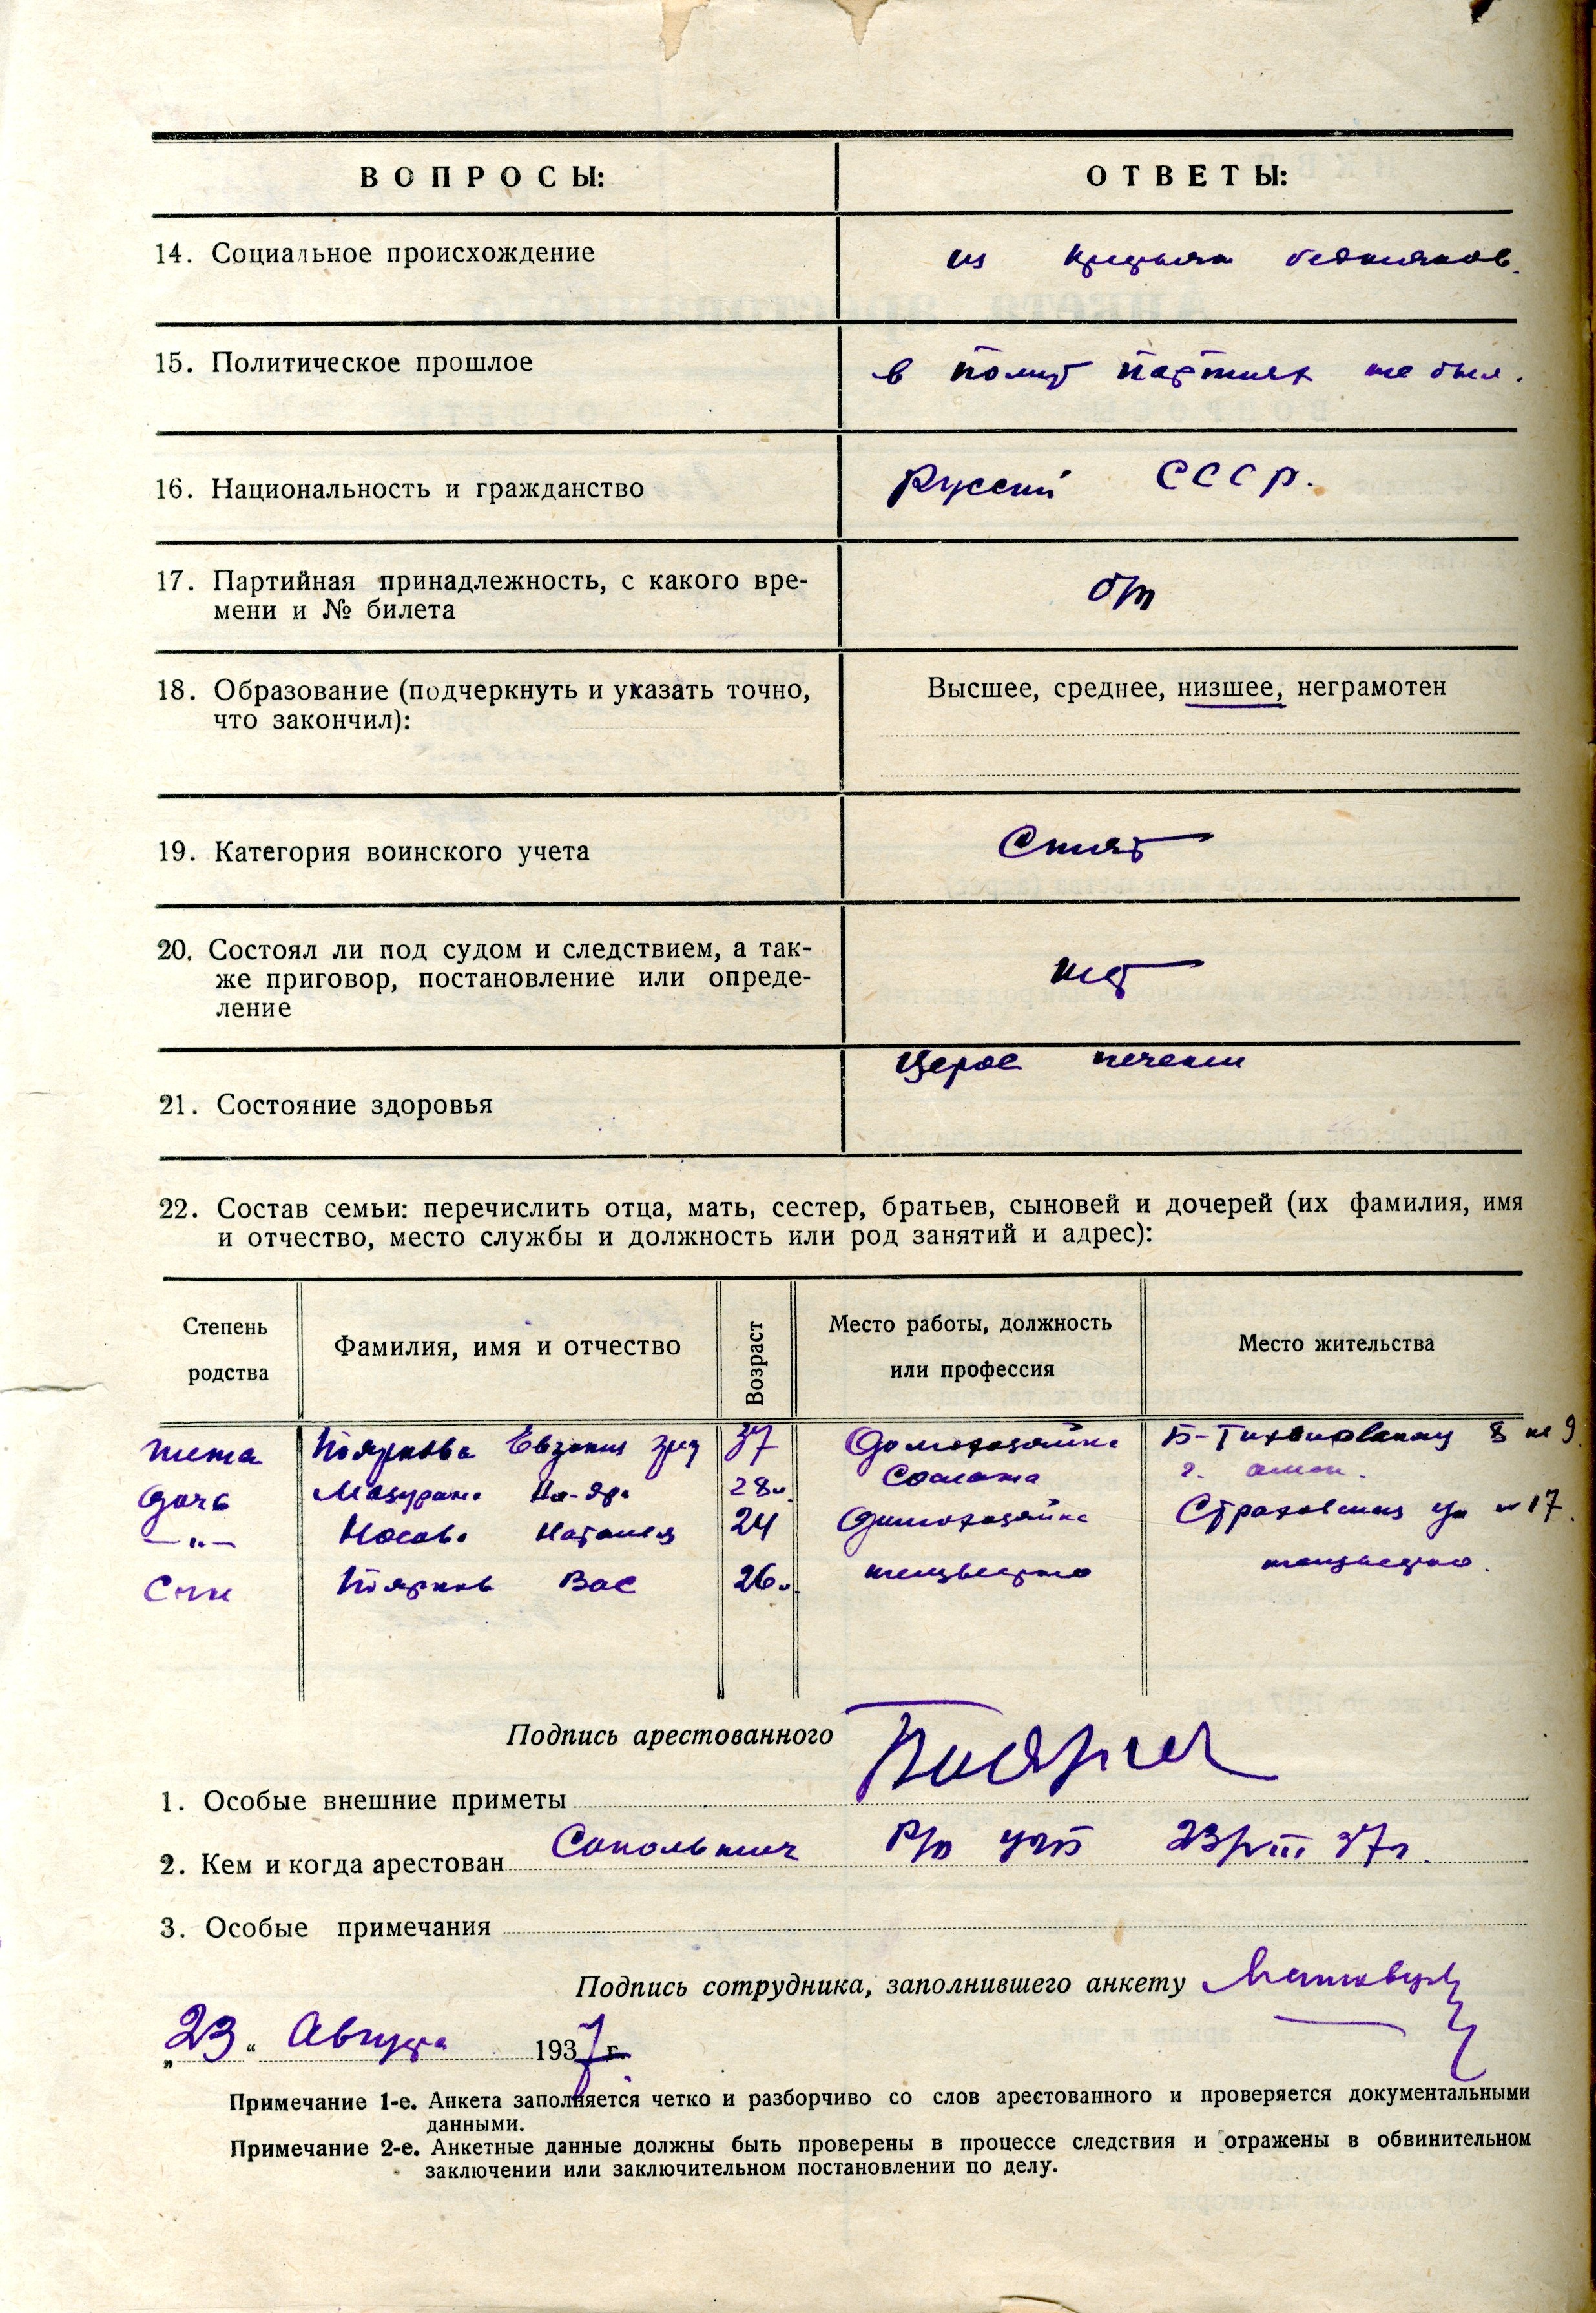 ВОПРОСЫ: ОТВЕТЫ:
14. Социальное происхождение из бедняков.
15. Политическое прошлое в полит партиях не был.
16. Национальность и гражданство Русский СССР.
17. Партийная принадлежность, с какого вре-
мени и № билета б/п
18. Образование (подчеркнуть и указать точно, Высшее, среднее, низшее, неграмотен
что закончил):
19. Категория воинского учета Снят
20. Состоял ли под судом и следствием, а так-
же приговор, постановление или опреде- нет
ление
Цероз печени
21. Состояние здоровья
22. Состав семьи: перечислить отца, мать, сестер, братьев, сыновей и дочерей (их фамилия, имя
и отчество, место службы и должность или род занятий и адрес):
Степень родства Фамилия, имя и отчество Возраст Место работы, должность или профессия Место жительства
жена Пояркова 37 Домохозяйка 9
дочь 28
—"— Носова Наталия 24 Домохозяйка Страховская ул 17
Сын Поярков Вас 26 неизвестно неизвестно.
Подпись арестованного
1. Особые внешние приметы
2. Кем и когда арестован 23/VIII 37г.
3. Особые примечания
Подпись сотрудника, заполнившего анкету
„23" Августа 1937 г.
Примечание 1-е. Анкета заполняется четко и разборчиво со слов арестованного и проверяется документальными
данными.
Примечание 2-е. Анкетные данные должны быть проверены в процессе следствия и отражены в обвинительном
заключении или заключительном постановлении по делу.